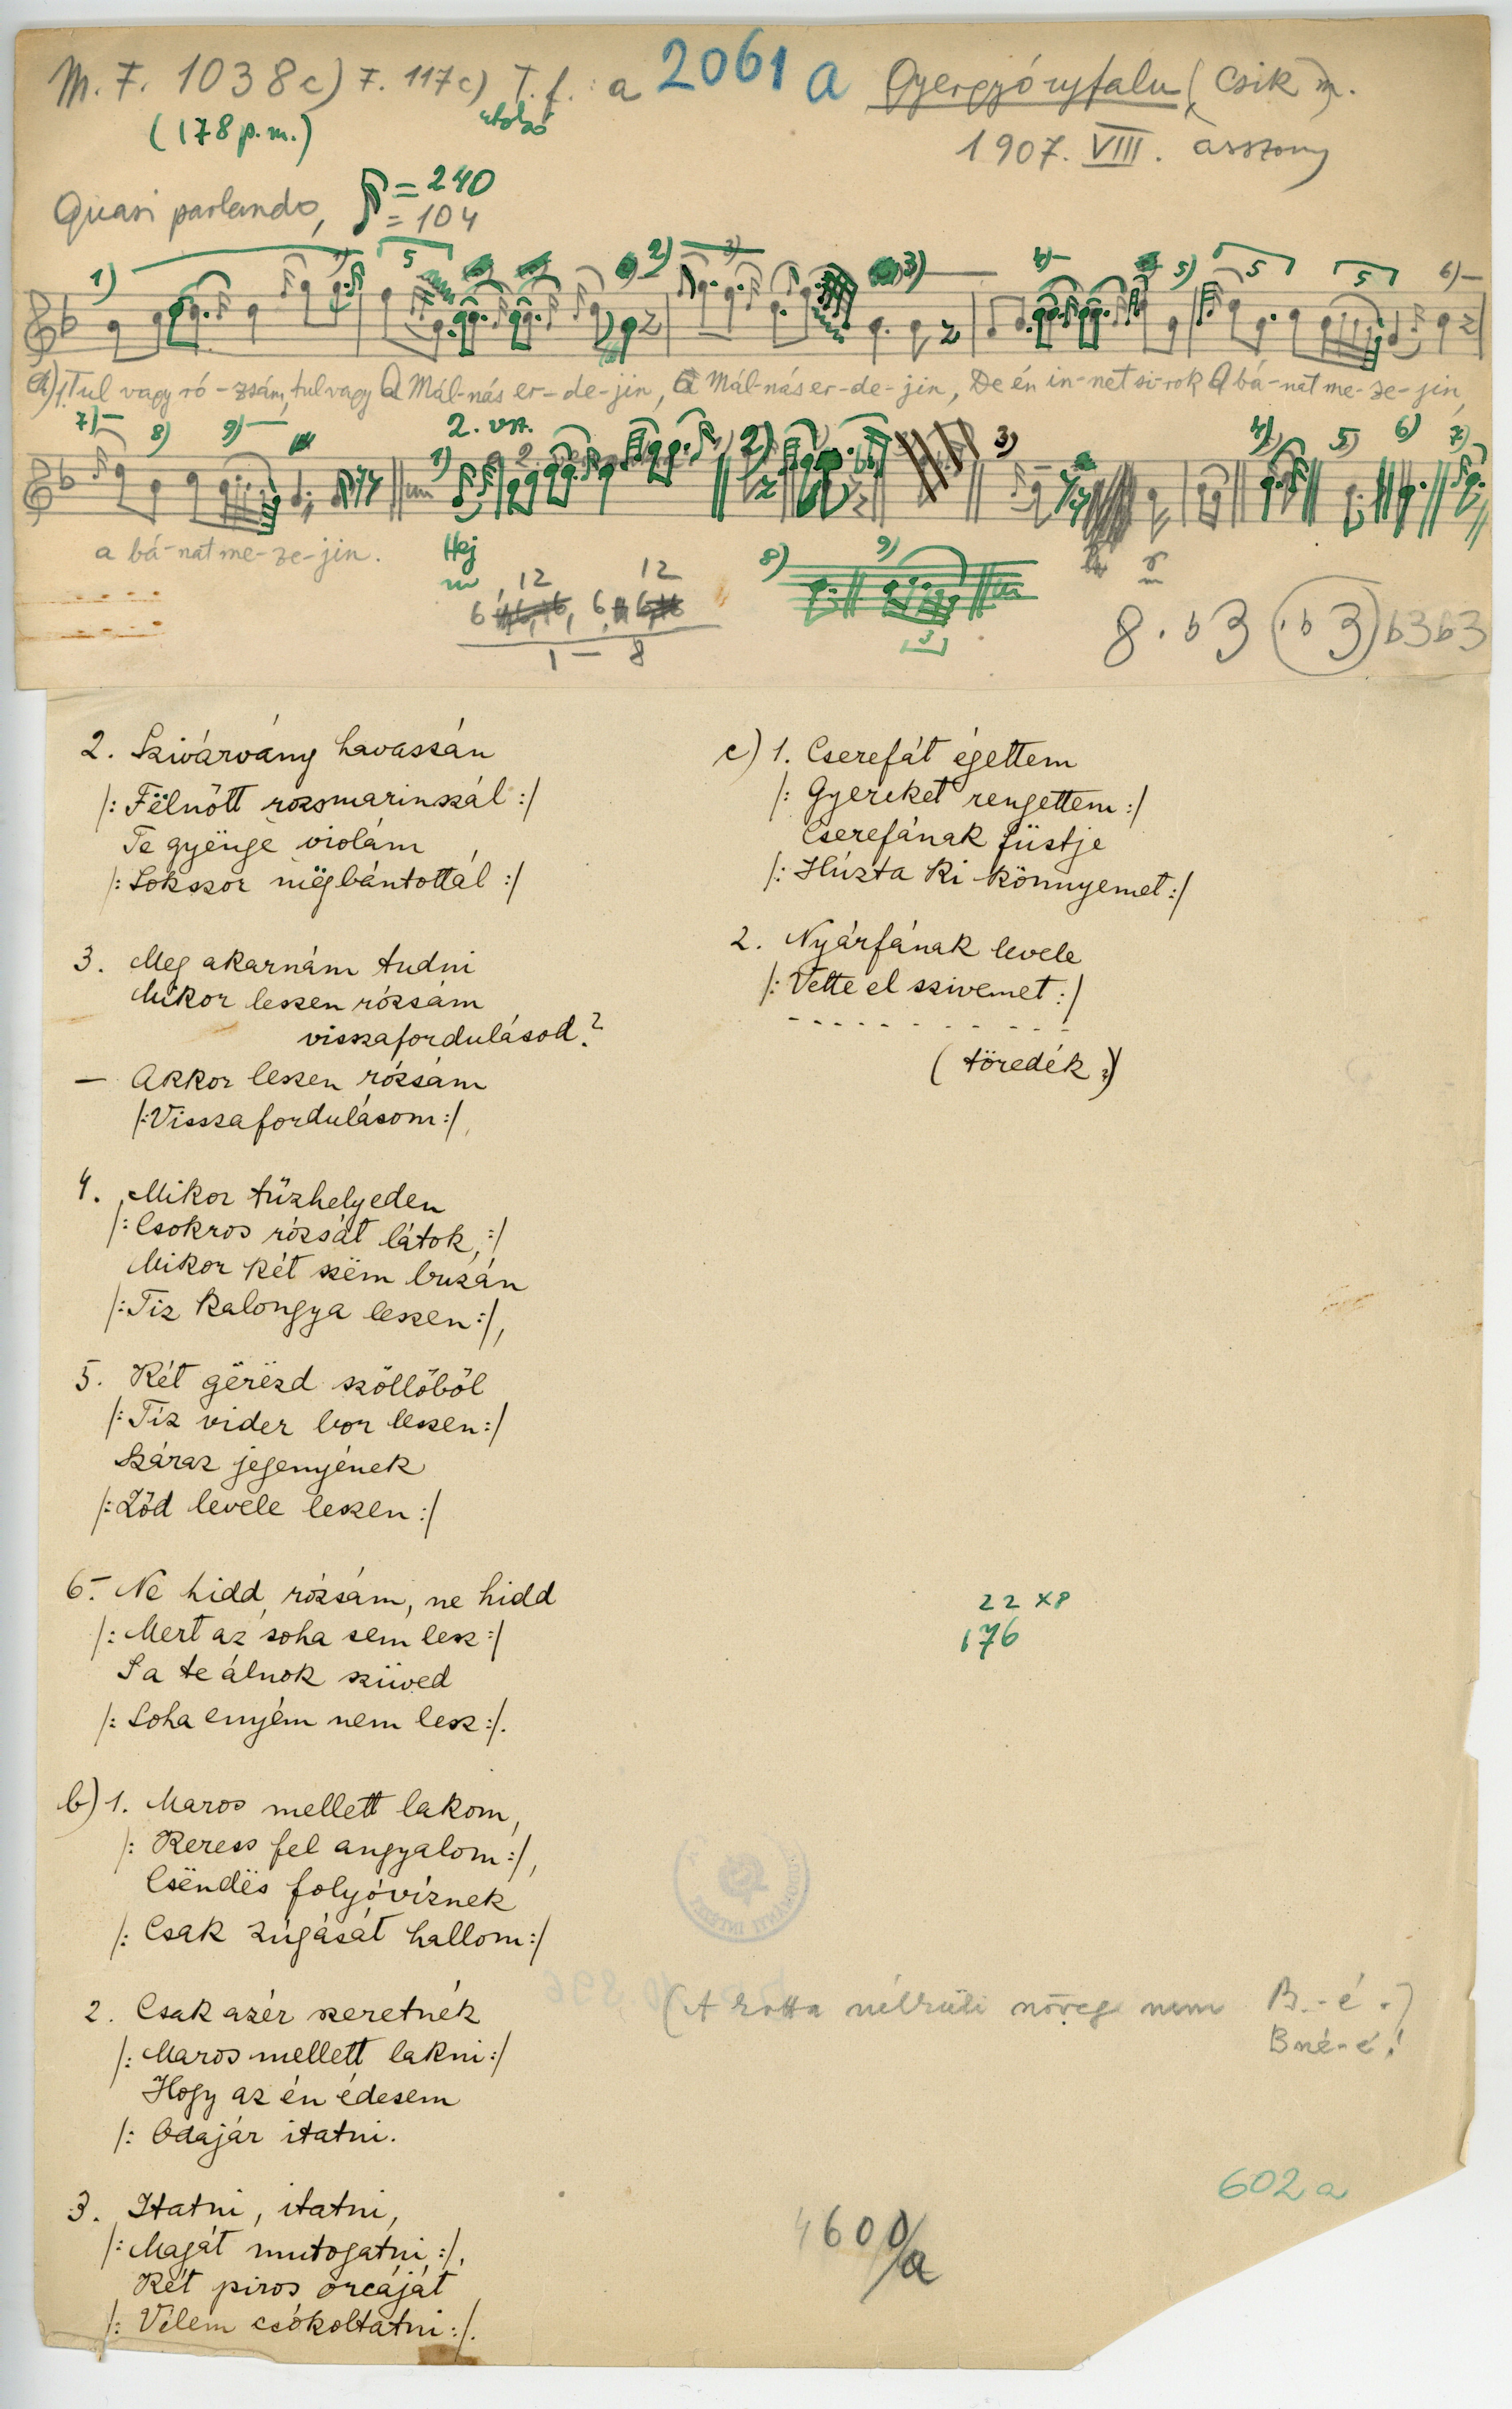 M. F. 1038c) F. 117c) T. f.: a 2061 a Gyergyóujfalu (Csik m.
utolsó
(178 p. m.)
1907. VIII. asszony
Quasi parlando, = 240
= 104
1) 5 2) 3) 3) 4) 5) 5 5 6)
a) 1. Tul vagy ró-zsám, tul vagy A Mál-nás er-de-jin, A Mál-nás er-de-jin, De én in-net si-rok A bá-nat me-ze-jin,
7) 8) 9) 2. vsz. 1) 2) 3) 4) 5) 6) 7)
a bá-nat me-ze-jin.
Haj
8) 9)
12 12
6 6 6
1 – 8
3
8. b3 (. b3) b3 b3
2. Szivárvány havassán
/: Fëlnőtt rozsmarinszál :/
Te gyënge violám
/: Sokszor mëgbántottál :/
3. Meg akarnám tudni
Mikor leszen rózsám
visszafordulásod?
— Akkor leszen rózsám
/: Visszafordulásom :/
4. Mikor tűzhelyeden
/: Csokros rózsát látok, :/
Mikor két szëm buzán
/: Tiz kalongya leszen :/,
5. Két gërëzd szőllőből
/: Tíz vider bor leszen :/
Száraz jegenyének
/: Ződ levele leszen :/
6. Ne hidd, rózsám, ne hidd
/: Mert az soha sem lesz :/
S a te álnok szüved
/: Soha enyém nem lesz :/.
b) 1. Maros mellett lakom,
/: Keress fel angyalom :/,
Csëndës folyóvíznek
/: Csak zúgását hallom :/
2. Csak azér szeretnék
/: Maros mellett lakni :/
Hogy az én édesem
/: Odajár itatni.
3. Itatni, itatni,
/: Magát mutogatni :/,
Két piros orcáját
/: Vélem csókoltatni :/.
c) 1. Cserefát égettem
/: Gyereket rengettem :/
Cserefának füstje
/: Húzta ki könnyemet :/
2. Nyárfának levele
/: Vette el szivemet :/
- - - - - - - - - - - -
(töredék)
22 x 8
176
(A kotta nélküli szöveg nem B.-é.)
Bné-é!
602 a
4600/a